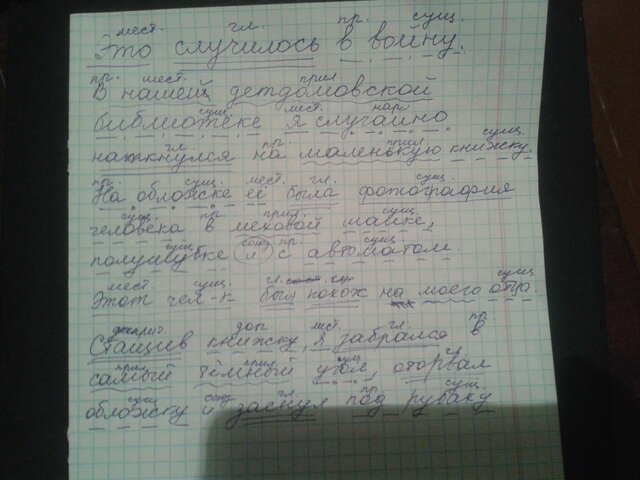 мест. гл. пр. сущ.
Это случилось в войну.
пр. мест. прил.
В нашей детдомовской
сущ. мест. нар.
библиотеке я случайно
гл. пр. прил. сущ.
наткнулся на маленькую книжку.
пр. сущ. мест. гл. сущ.
На обложке её была фотография
сущ. пр. прил. сущ.
человека в меховой шапке,
сущ. союз пр. сущ.
полушубке и с автоматом.
мест. сущ. гл. сущ.
Этот чел-к был похож на моего отца.
дееприч. доп. мест. гл. пр.
Стащив книжку, я забрался в
прил. прил. сущ. гл.
самый тёмный угол, оторвал
сущ. союз гл. пр. сущ.
обложку и заснул под рубаху